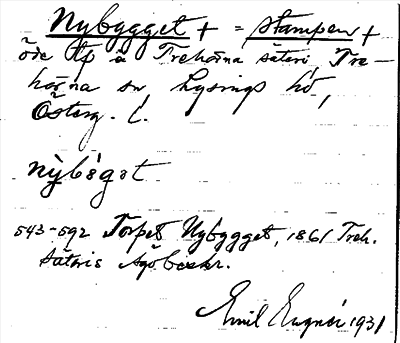 Nybygget + = stampen +
öde tp å Trehörna säteri, Tre-
hörna sn, Lysings hd,
Österg. l.
nỳbǵgət
543-592 Torpet Nybygget, 1861 Treh.
säteris ägobeskr.
Emil 1931